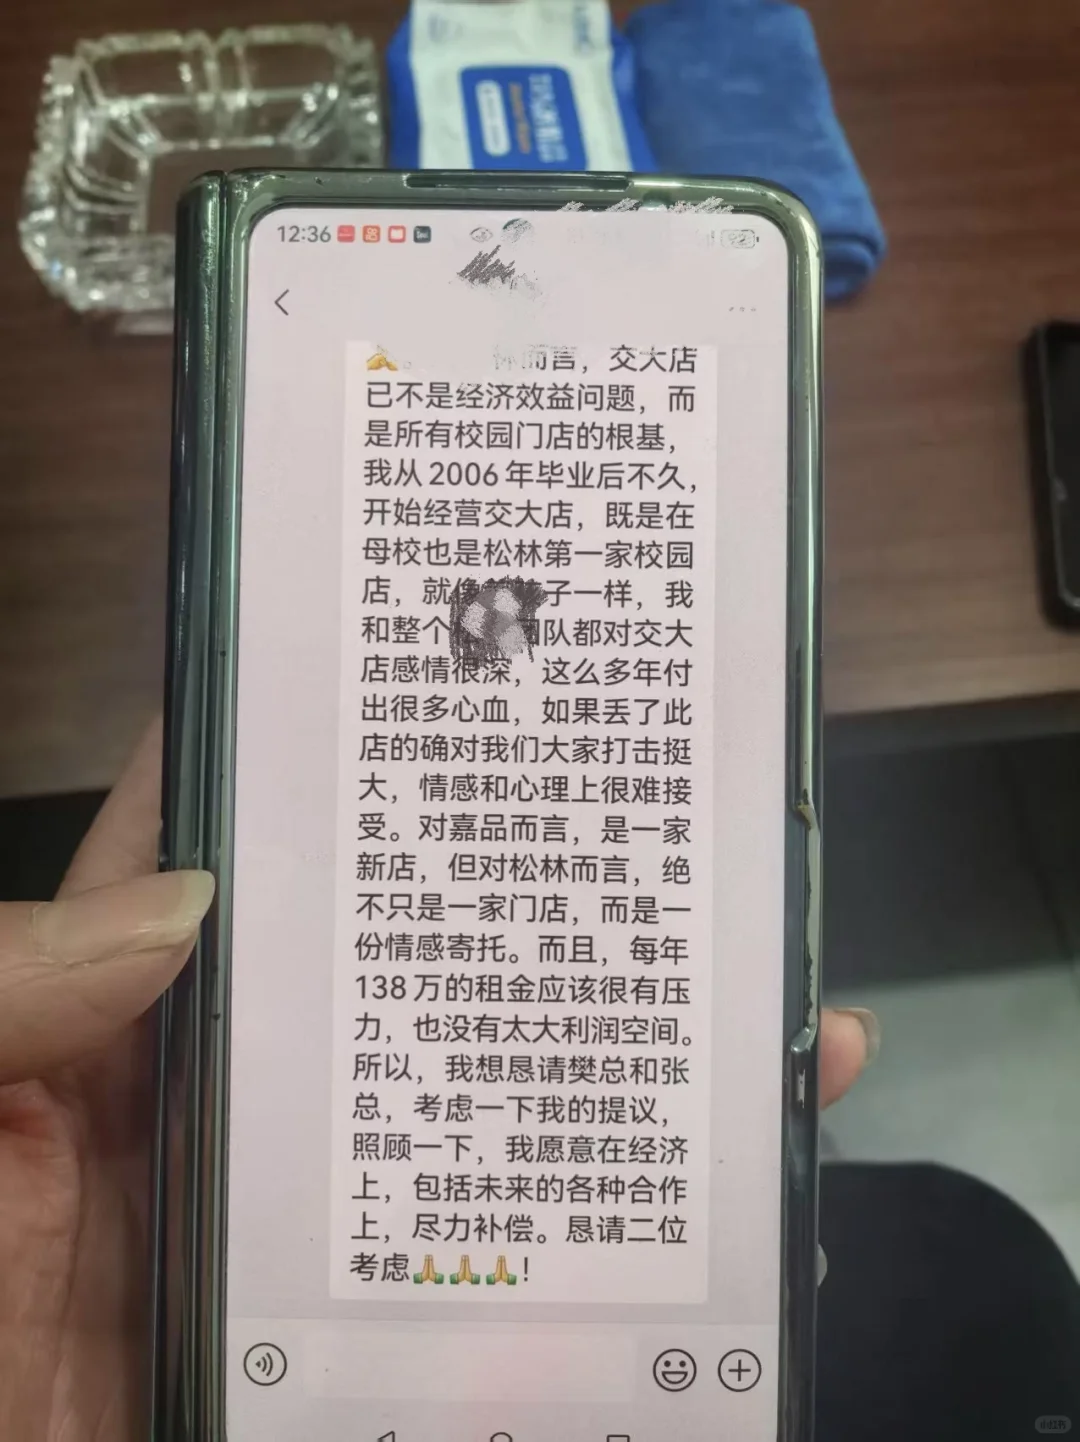 12:36
92
而言，交大店
已不是经济效益问题，而
是所有校园门店的根基，
我从2006年毕业后不久，
开始经营交大店，既是在
母校也是松林第一家校园
店，就像 子一样，我
和整个 团队都对交大
店感情很深，这么多年付
出很多心血，如果丢了此
店的确对我们大家打击挺
大，情感和心理上很难接
受。对嘉品而言，是一家
新店，但对松林而言，绝
不只是一家门店，而是一
份情感寄托。而且，每年
138万的租金应该很有压
力，也没有太大利润空间。
所以，我想恳请樊总和张
总，考虑一下我的提议，
照顾一下，我愿意在经济
上，包括未来的各种合作
上，尽力补偿。恳请二位
考虑🙏🙏🙏！
小红书